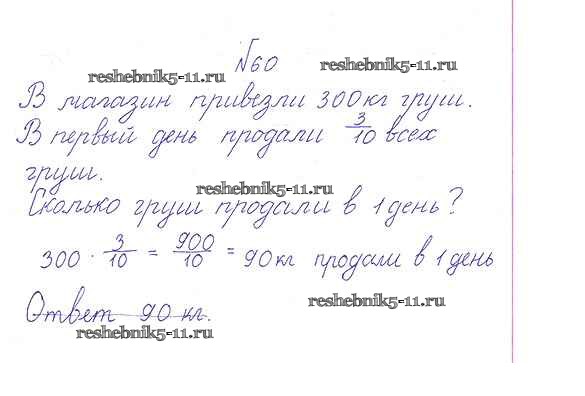 №60
reshebnik5-11.ru
reshebnik5-11.ru
В магазин привезли 300кг груш.
В первый день продали 3/10 всех
груш.
reshebnik5-11.ru
Сколько груш продали в 1 день?
300 · 3/10 = 900/10 = 90кг продали в 1 день
reshebnik5-11.ru
Ответ 90 кг.
reshebnik5-11.ru